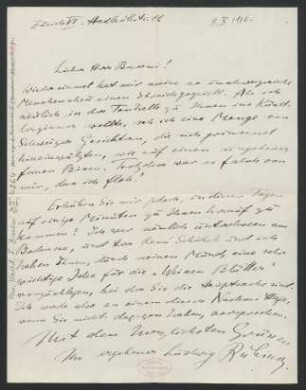 Zürich VI. Hadlaubstr. 11
9. X. 1916.
Lieber Herr Busoni!
Wieder einmal hat mir meine so
Menschenscheu einen Streich gespielt. Als ich
neulich in der Tonhalle zu Ihnen ins Künstler-
wollte, sah ich eine Menge von
Schweizer Gesichtern, die sich
hineindrängten, wie auf einen
feinen Bissen. Trotzdem war es falsch von
mir, dass ich floh!
Erlauben Sie mir jedoch, in diesen Tagen
auf einige Minuten zu Ihnen hinauf zu
kommen? Ich war nämlich unterdessen am
Bodensee, und Herr René Schickele und ich
haben Ihnen, durch meinen Mund, eine sehr
wichtige Idee für die „Weissen Blätter"
vorzuschlagen, bei der Sie die Hauptsache sind.
Ich werde also an einem dieser Nachmittage,
wenn Sie nicht dagegen haben, vorsprechen.
Mit den herzlichsten Grüssen
Ihr ergebener Ludwig Rubiner